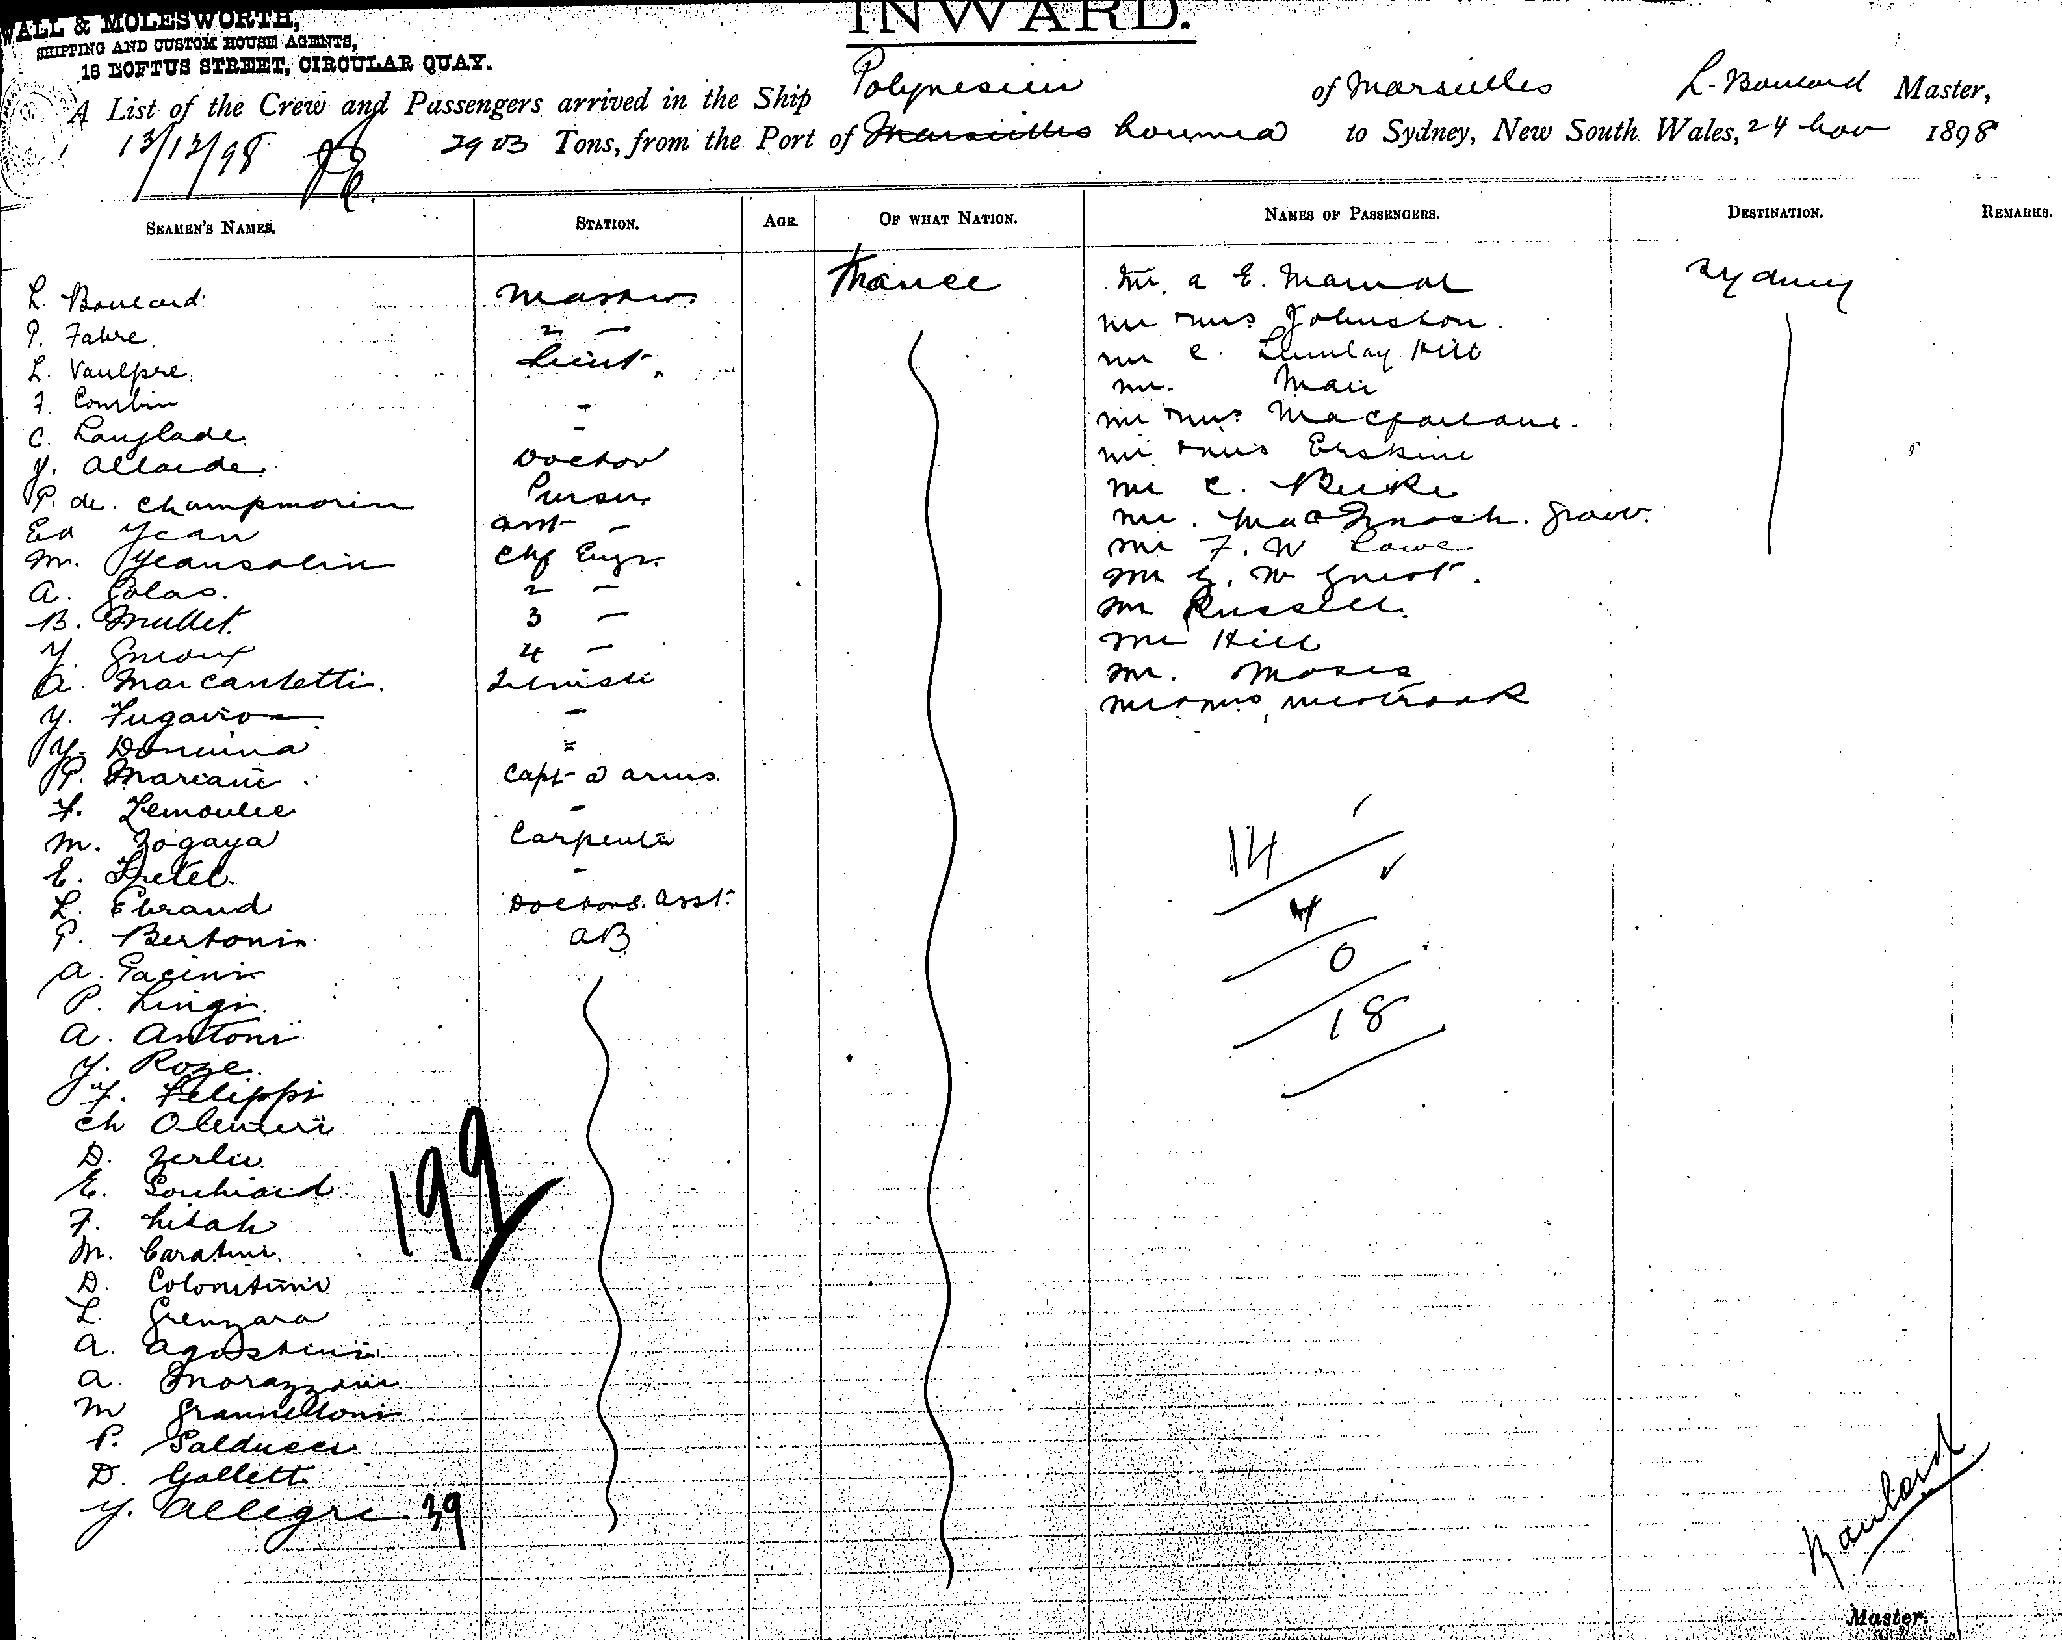 WALL & MOLESWORTH,
SHIPPING AND CUSTOM HOUSE AGENTS,
18 LOFTUS STREET, CIRCULAR QUAY.
INWARD.
A List of the Crew and Passengers arrived in the Ship Polynesien of Marseilles L. Boulard Master,
13/12/98 2903 Tons, from the Port of Marseilles Noumea to Sydney, New South Wales, 24 Nov 1898
SEAMEN'S NAMES. STATION. AGE OF WHAT NATION. NAMES OF PASSENGERS. DESTINATION. REMARKS.
L. Boulard Master France Mr. A E. Sydney
P. Fabre. 2 — Mr & Mrs Johnston.
L. Vaulpre. Lieut. Mr C. Lumley Hill
F. Courbin - Mr. Mair
C. Langlade. - Mr & Mrs Macfarlane.
J. Allaide. Doctor Mr & Mrs Erskine
P. de. Champmorin Purser Mr C.
Ed Jean Asst — Mr.
M. Jeansolin Chf Engr. Mr F. W Lowe
A. Colas. 2 — Mr G. W
B. Mullet. 3 — Mr Russell.
J. 4 — Mr Hill
A. Marcantetti. Mr. Moses
J. Fugairon - Mr & Mrs
J. Donnina =
P. Mariani Capt d arms.
F. Lemoulec -
M. Zogaya Carpenter 14
E. -
L. Ebrand Doctors. Asst. 4
P. Bertonin AB
A. Pacini 0
P. Lingi
A. Antoni 18
J. Roze.
J. F. Filippi
Ch Olivieri
D. Zerlin
E. Souhiard 199
F. Litah
M. Caratini
D. Colonitimi
L. Grenzara
A. Agostini
A. Morazzani
M Grannettoni
P. Palducci
D. Gallett
J. Allegri 39
Boulard
Master.